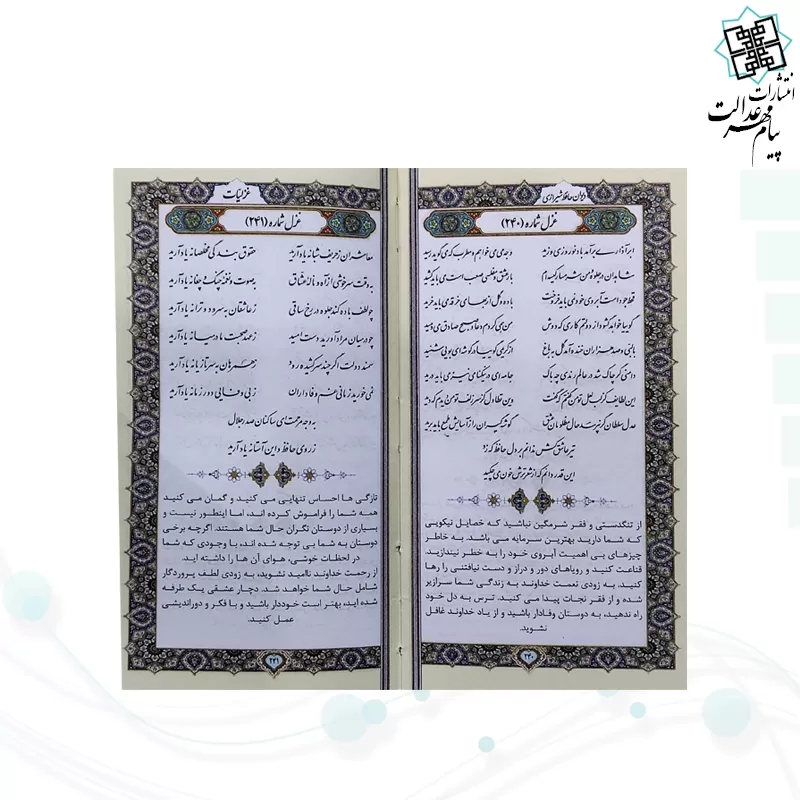 انتشارات
پیام مهر عدالت
دیوان حافظ شیرازی
غزل شماره (۲۴۰)
ابر آذاری برآمد باد نوروزی وزید وجه می می خواهم و مطرب که می گوید رسید
شاهدان در جلوه و من شرمسار کیسه ام بار عشق و مفلسی صعب است می باید کشید
قحط جود است آبروی خود نمی باید فروخت باده و گل از بهای خرقه می باید خرید
گوییا خواهد گشود از دولتم کاری که دوش من همی کردم دعا و صبح صادق می دمید
با لبی و صد هزاران خنده آمد گل به باغ از کریمی گوییا در گوشه ای بویی شنید
دامنی گر چاک شد در عالم رندی چه باک جامه ای در نیکنامی نیز می باید درید
این لطایف کز لب لعل تو من گفتم که گفت وین تطاول کز سر زلف تو من دیدم که دید
عدل سلطان گر نپرسد حال مظلومان عشق گوشه گیران را ز آسایش طمع باید برید
تیر عاشق کش ندانم بر دل حافظ که زد
این قدر دانم که از شعر ترش خون می چکید
از تنگدستی و فقر شرمگین نباشید که خصایل نیکویی
که شما دارید بهترین سرمایه می باشد. به خاطر
چیزهای بی اهمیت آبروی خود را به خطر نیندازید.
قناعت کنید و رویاهای دور و دراز و دست نیافتنی را رها
کنید. به زودی نعمت خداوند به زندگی شما سرازیر
شده و از فقر نجات پیدا می کنید. ترس به دل خود
راه ندهید، به دوستان وفادار باشید و از یاد خداوند غافل
نشوید.
۲۴۰
غزلیات
غزل شماره (۲۴۱)
معاشران ز حریف شبانه یاد آرید حقوق بندگی مخلصانه یاد آرید
به وقت سرخوشی از آه و ناله عشاق به صوت و نغمه چنگ و چغانه یاد آرید
چو لطف باده کند جلوه در رخ ساقی ز عاشقان به سرود و ترانه یاد آرید
چو در میان مراد آورید دست امید ز عهد صحبت ما در میانه یاد آرید
سمند دولت اگر چند سرکشیده رود ز همرهان به سر تازیانه یاد آرید
نمی خورید زمانی غم وفاداران ز بی وفایی دور زمانه یاد آرید
به وجه مرحمت ای ساکنان صدر جلال
ز روی حافظ و این آستانه یاد آرید
تازگی ها احساس تنهایی می کنید و گمان می کنید
همه شما را فراموش کرده اند، اما اینطور نیست و
بسیاری از دوستان نگران حال شما هستند. اگرچه برخی
دوستان به شما بی توجه شده اند، با وجودی که شما
در لحظات خوشی، هوای آن ها را داشته اید.
از رحمت خداوند ناامید نشوید، به زودی لطف پروردگار
شامل حال شما خواهد شد. دچار عشقی یک طرفه
شده اید، بهتر است خوددار باشید و با فکر و دوراندیشی
عمل کنید.
۲۴۱